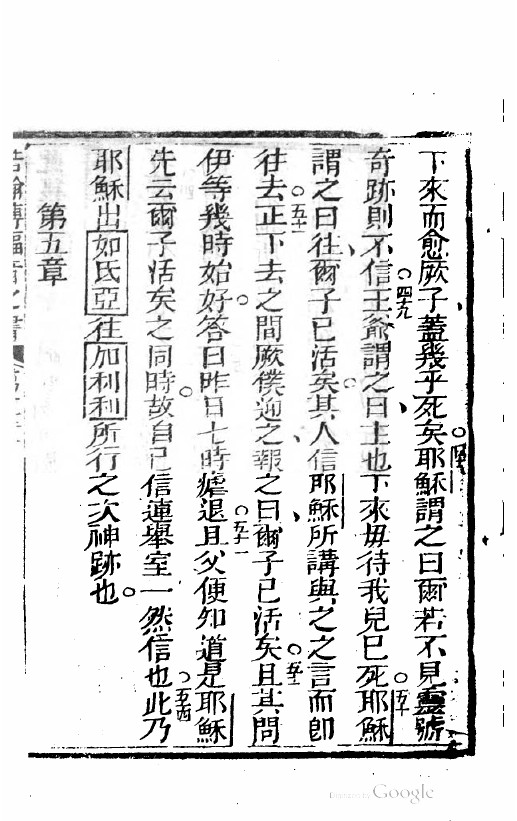 下來而愈厥子蓋幾乎死矣。耶穌謂之曰爾若不見靈號
奇跡則不信。四九王爺謂之曰主也下來毋待我兒已死。五十耶穌
謂之曰往爾子已活矣。其人信耶穌所講與之之言而卽
往去。五一正下去之間厥僕迎之報之曰爾子已活矣。五二且其問
伊等幾時始好。答曰昨日七時瘧退。五三且父便知道是耶穌
先云爾子活矣之同時。故自己信連舉室一然信也。五四此乃
耶穌出如氏亞往加利利所行之次神跡也。
第五章
Google